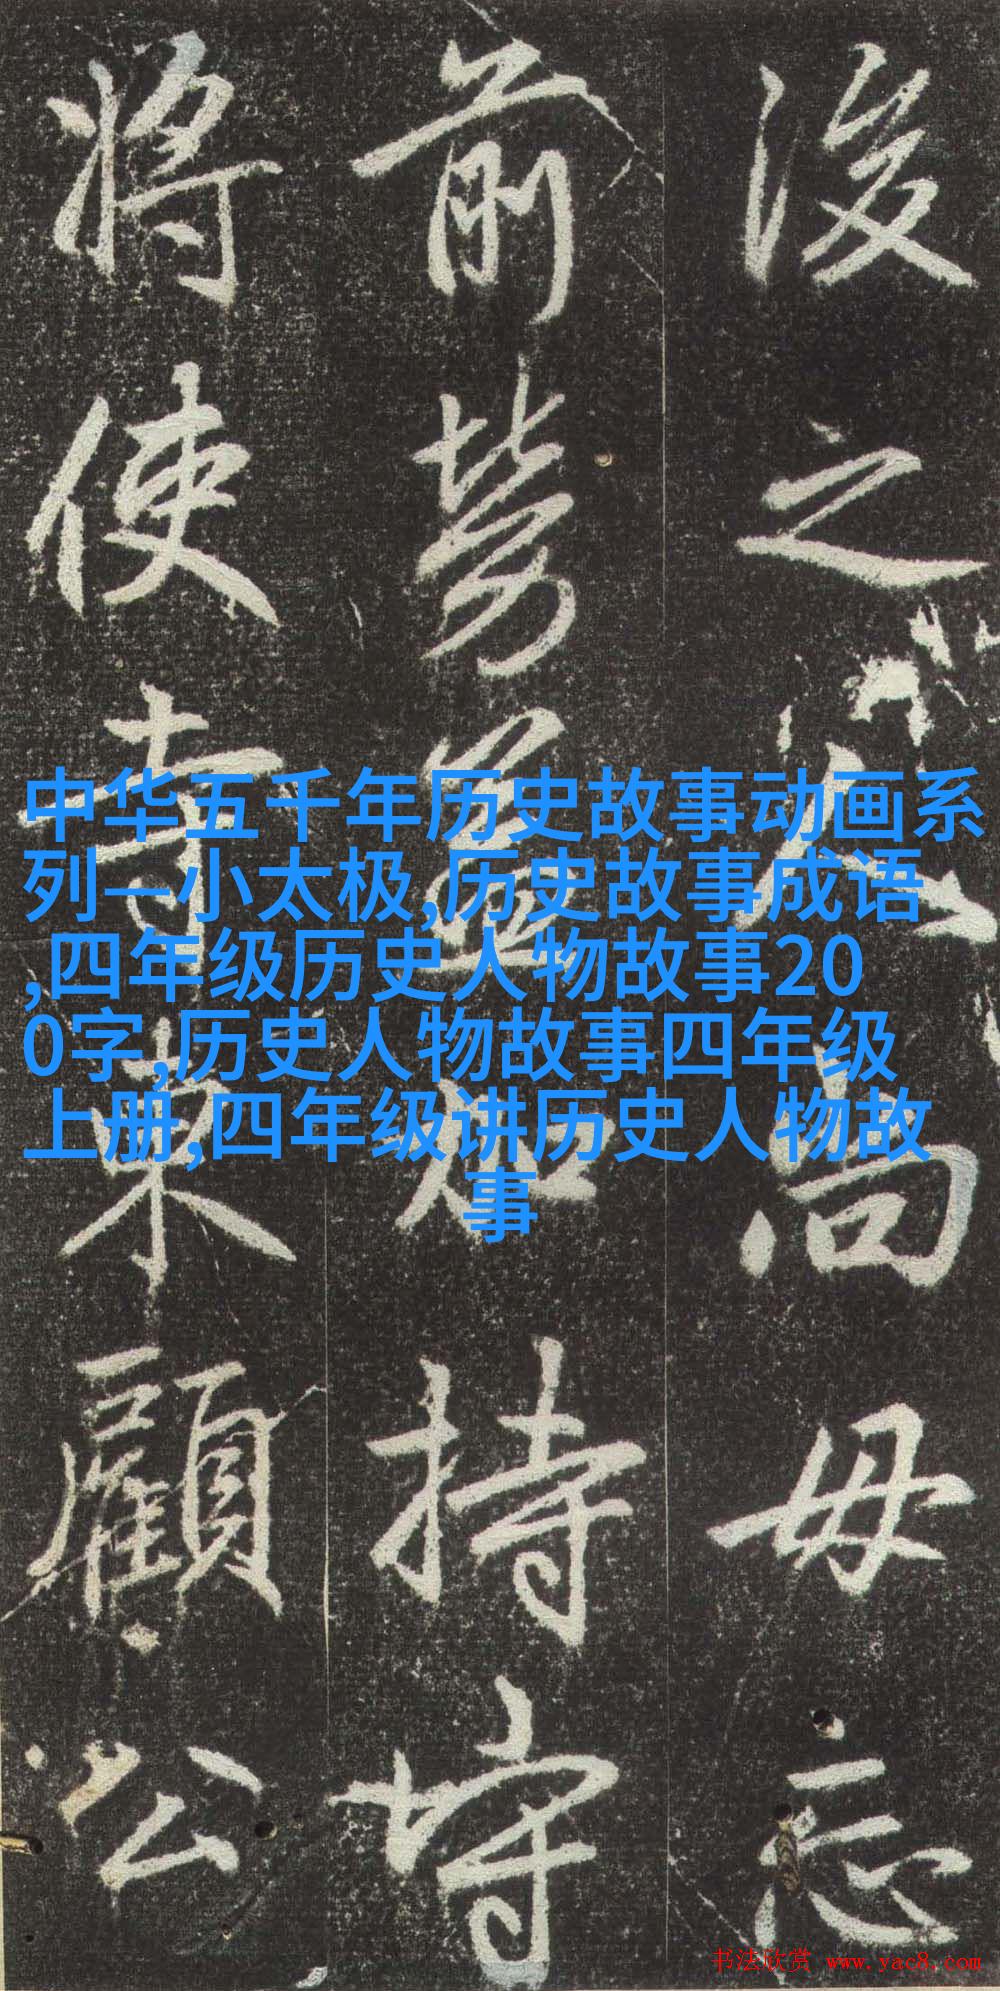 後之人尚毋忘
前勞益加持守
將使寺東顧公
中华五千年历史故事动画系
列—小太极,历史故事成语
,四年级历史人物故事20
0字,历史人物故事四年级
上册,四年级讲历史人物故
事
书法欣赏 www.yac8.com